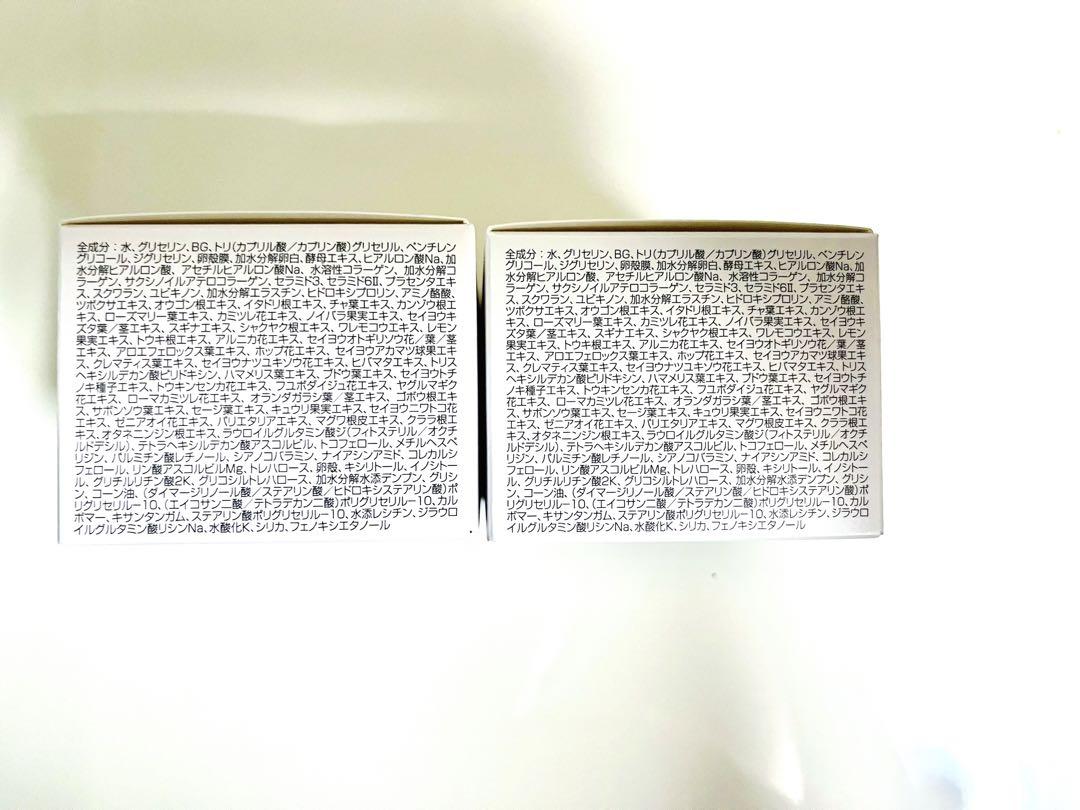 全成分：水、グリセリン、BG、トリ(カプリル酸／カプリン酸)グリセリル、ペンチレン
グリコール、ジグリセリン、卵殻膜、加水分解卵白、酵母エキス、ヒアルロン酸Na、加
水分解ヒアルロン酸、アセチルヒアルロン酸Na、水溶性コラーゲン、加水分解コ
ラーゲン、サクシノイルアテロコラーゲン、セラミド3、セラミド6Ⅱ、プラセンタエキ
ス、スクワラン、ユビキノン、加水分解エラスチン、ヒドロキシプロリン、アミノ酪酸、
ツボクサエキス、オウゴン根エキス、イタドリ根エキス、チャ葉エキス、カンゾウ根エ
キス、ローズマリー葉エキス、カミツレ花エキス、ノイバラ果実エキス、セイヨウキ
ズタ葉／茎エキス、スギナエキス、シャクヤク根エキス、ワレモコウエキス、レモン
果実エキス、トウキ根エキス、アルニカ花エキス、セイヨウオトギリソウ花／葉／茎
エキス、アロエフェロックス葉エキス、ホップ花エキス、セイヨウアカマツ球果エキ
ス、クレマティス葉エキス、セイヨウナツユキソウ花エキス、ヒバマタエキス、トリス
ヘキシルデカン酸ピリドキシン、ハマメリス葉エキス、ブドウ葉エキス、セイヨウトチ
ノキ種子エキス、トウキンセンカ花エキス、フユボダイジュ花エキス、ヤグルマギク
花エキス、ローマカミツレ花エキス、オランダガラシ葉／茎エキス、ゴボウ根エキ
ス、サボンソウ葉エキス、セージ葉エキス、キュウリ果実エキス、セイヨウニワトコ花
エキス、ゼニアオイ花エキス、パリエタリアエキス、マグワ根皮エキス、クララ根エ
キス、オタネニンジン根エキス、ラウロイルグルタミン酸ジ(フィトステリル／オクチ
ルドデシル)、テトラヘキシルデカン酸アスコルビル、トコフェロール、メチルヘスペ
リジン、パルミチン酸レチノール、シアノコバラミン、ナイアシンアミド、コレカルシ
フェロール、リン酸アスコルビルMg、トレハロース、卵殻、キシリトール、イノシトー
ル、グリチルリチン酸2K、グリコシルトレハロース、加水分解水添デンプン、グリシ
ン、コーン油、(ダイマージリノール酸／ステアリン酸／ヒドロキシステアリン酸)ポ
リグリセリル－10、(エイコサン二酸／テトラデカン二酸)ポリグリセリル－10、カル
ボマー、キサンタンガム、ステアリン酸ポリグリセリル－10、水添レシチン、ジラウロ
イルグルタミン酸リシンNa、水酸化K、シリカ、フェノキシエタノール
全成分：水、グリセリン、BG、トリ(カプリル酸／カプリン酸)グリセリル、ペンチレン
グリコール、ジグリセリン、卵殻膜、加水分解卵白、酵母エキス、ヒアルロン酸Na、加
水分解ヒアルロン酸、アセチルヒアルロン酸Na、水溶性コラーゲン、加水分解コ
ラーゲン、サクシノイルアテロコラーゲン、セラミド3、セラミド6Ⅱ、プラセンタエキ
ス、スクワラン、ユビキノン、加水分解エラスチン、ヒドロキシプロリン、アミノ酪酸、
ツボクサエキス、オウゴン根エキス、イタドリ根エキス、チャ葉エキス、カンゾウ根エ
キス、ローズマリー葉エキス、カミツレ花エキス、ノイバラ果実エキス、セイヨウキ
ズタ葉／茎エキス、スギナエキス、シャクヤク根エキス、ワレモコウエキス、レモン
果実エキス、トウキ根エキス、アルニカ花エキス、セイヨウオトギリソウ花／葉／茎
エキス、アロエフェロックス葉エキス、ホップ花エキス、セイヨウアカマツ球果エキ
ス、クレマティス葉エキス、セイヨウナツユキソウ花エキス、ヒバマタエキス、トリス
ヘキシルデカン酸ピリドキシン、ハマメリス葉エキス、ブドウ葉エキス、セイヨウトチ
ノキ種子エキス、トウキンセンカ花エキス、フユボダイジュ花エキス、ヤグルマギク
花エキス、ローマカミツレ花エキス、オランダガラシ葉／茎エキス、ゴボウ根エキ
ス、サボンソウ葉エキス、セージ葉エキス、キュウリ果実エキス、セイヨウニワトコ花
エキス、ゼニアオイ花エキス、パリエタリアエキス、マグワ根皮エキス、クララ根エ
キス、オタネニンジン根エキス、ラウロイルグルタミン酸ジ(フィトステリル／オクチ
ルドデシル)、テトラヘキシルデカン酸アスコルビル、トコフェロール、メチルヘスペ
リジン、パルミチン酸レチノール、シアノコバラミン、ナイアシンアミド、コレカルシ
フェロール、リン酸アスコルビルMg、トレハロース、卵殻、キシリトール、イノシトー
ル、グリチルリチン酸2K、グリコシルトレハロース、加水分解水添デンプン、グリシ
ン、コーン油、(ダイマージリノール酸／ステアリン酸／ヒドロキシステアリン酸)ポ
リグリセリル－10、(エイコサン二酸／テトラデカン二酸)ポリグリセリル－10、カル
ボマー、キサンタンガム、ステアリン酸ポリグリセリル－10、水添レシチン、ジラウロ
イルグルタミン酸リシンNa、水酸化K、シリカ、フェノキシエタノール